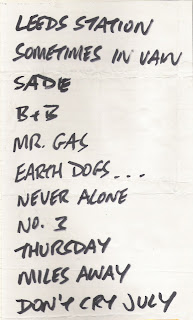 LEEDS STATION
SOMETIMES IN VAIN
SADE
B+B
MR. GAS
EARTH DOGS...
NEVER ALONE
NO. 3
THURSDAY
MILES AWAY
DON'T CRY JULY